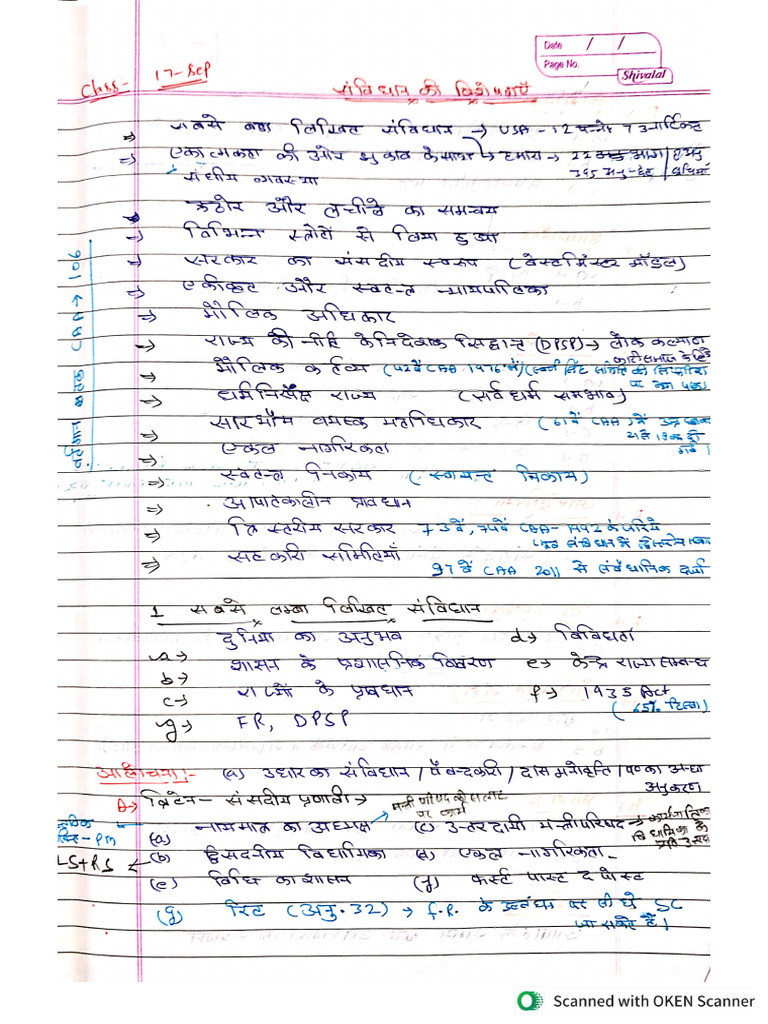 Date / /
Page No.
Shivalal
Class- 17-Sep
संविधान की विशेषताएँ
⇒ सबसे बड़ा लिखित संविधान → USA - 12 पन्ने 7 आर्टिकल
⇒ एकात्मकता की ओर झुकाव के साथ हमारा → 22 भाग /
संघीय व्यवस्था 395 अनुच्छेद
कठोर और लचीले का समन्वय
⇒ विभिन्न स्त्रोतों से लिया हुआ
⇒ सरकार का संसदीय स्वरूप (वेस्टमिंस्टर मॉडल)
⇒ एकीकृत और स्वतन्त्र न्यायपालिका
⇒ मौलिक अधिकार
⇒ राज्य की नीति के निदेशक सिद्धान्त (DPSP) → लोक कल्याण
⇒ मौलिक कर्तव्य (42वें CAA 1976 में) (स्वर्ण सिंह समिति की सिफारिश
पर
⇒ धर्मनिरपेक्ष राज्य (सर्व धर्म समभाव)
⇒ सार्वभौम वयस्क मताधिकार (61वें CAA में
⇒ एकल नागरिकता
⇒ स्वतन्त्र निकाय (स्वायत्त निकाय)
⇒ आपातकालीन प्रावधान
⇒ त्रि स्तरीय सरकार 73वें, 74वें CAA-1992 के
⇒ सहकारी समितियाँ
97 वें CAA 2011 से संवैधानिक दर्जा
वर्तमान तक CAA → 106
1 सबसे लम्बा लिखित संविधान
a → दुनिया का अनुभव d → विविधता
b → शासन के प्रशासनिक विवरण e → केन्द्र राज्य सम्बन्ध
c → राज्यों के प्रावधान f → 1935 Act
g → FR, DPSP (65% हिस्सा)
आलोचना :- (a) उधार का संविधान / पैबन्दकारी / दास मनोवृत्ति / पश्चिम का अन्धा
अनुकरण
ब्रिटेन - संसदीय प्रणाली → मन्त्री परिषद की सलाह
पर कार्य
(a) नाममात्र का अध्यक्ष (c) उत्तरदायी मन्त्रीपरिषद ⇒ कार्यपालिका
विधायिका के
प्रति
PM
LS+RS ← (b) द्विसदनीय विधायिका (d) एकल नागरिकता
(e) विधि का शासन (f) फर्स्ट पास्ट द पोस्ट
(g) रिट (अनु. 32) → F.R. के उल्लंघन पर सीधे SC
जा सकते हैं।
Scanned with OKEN Scanner